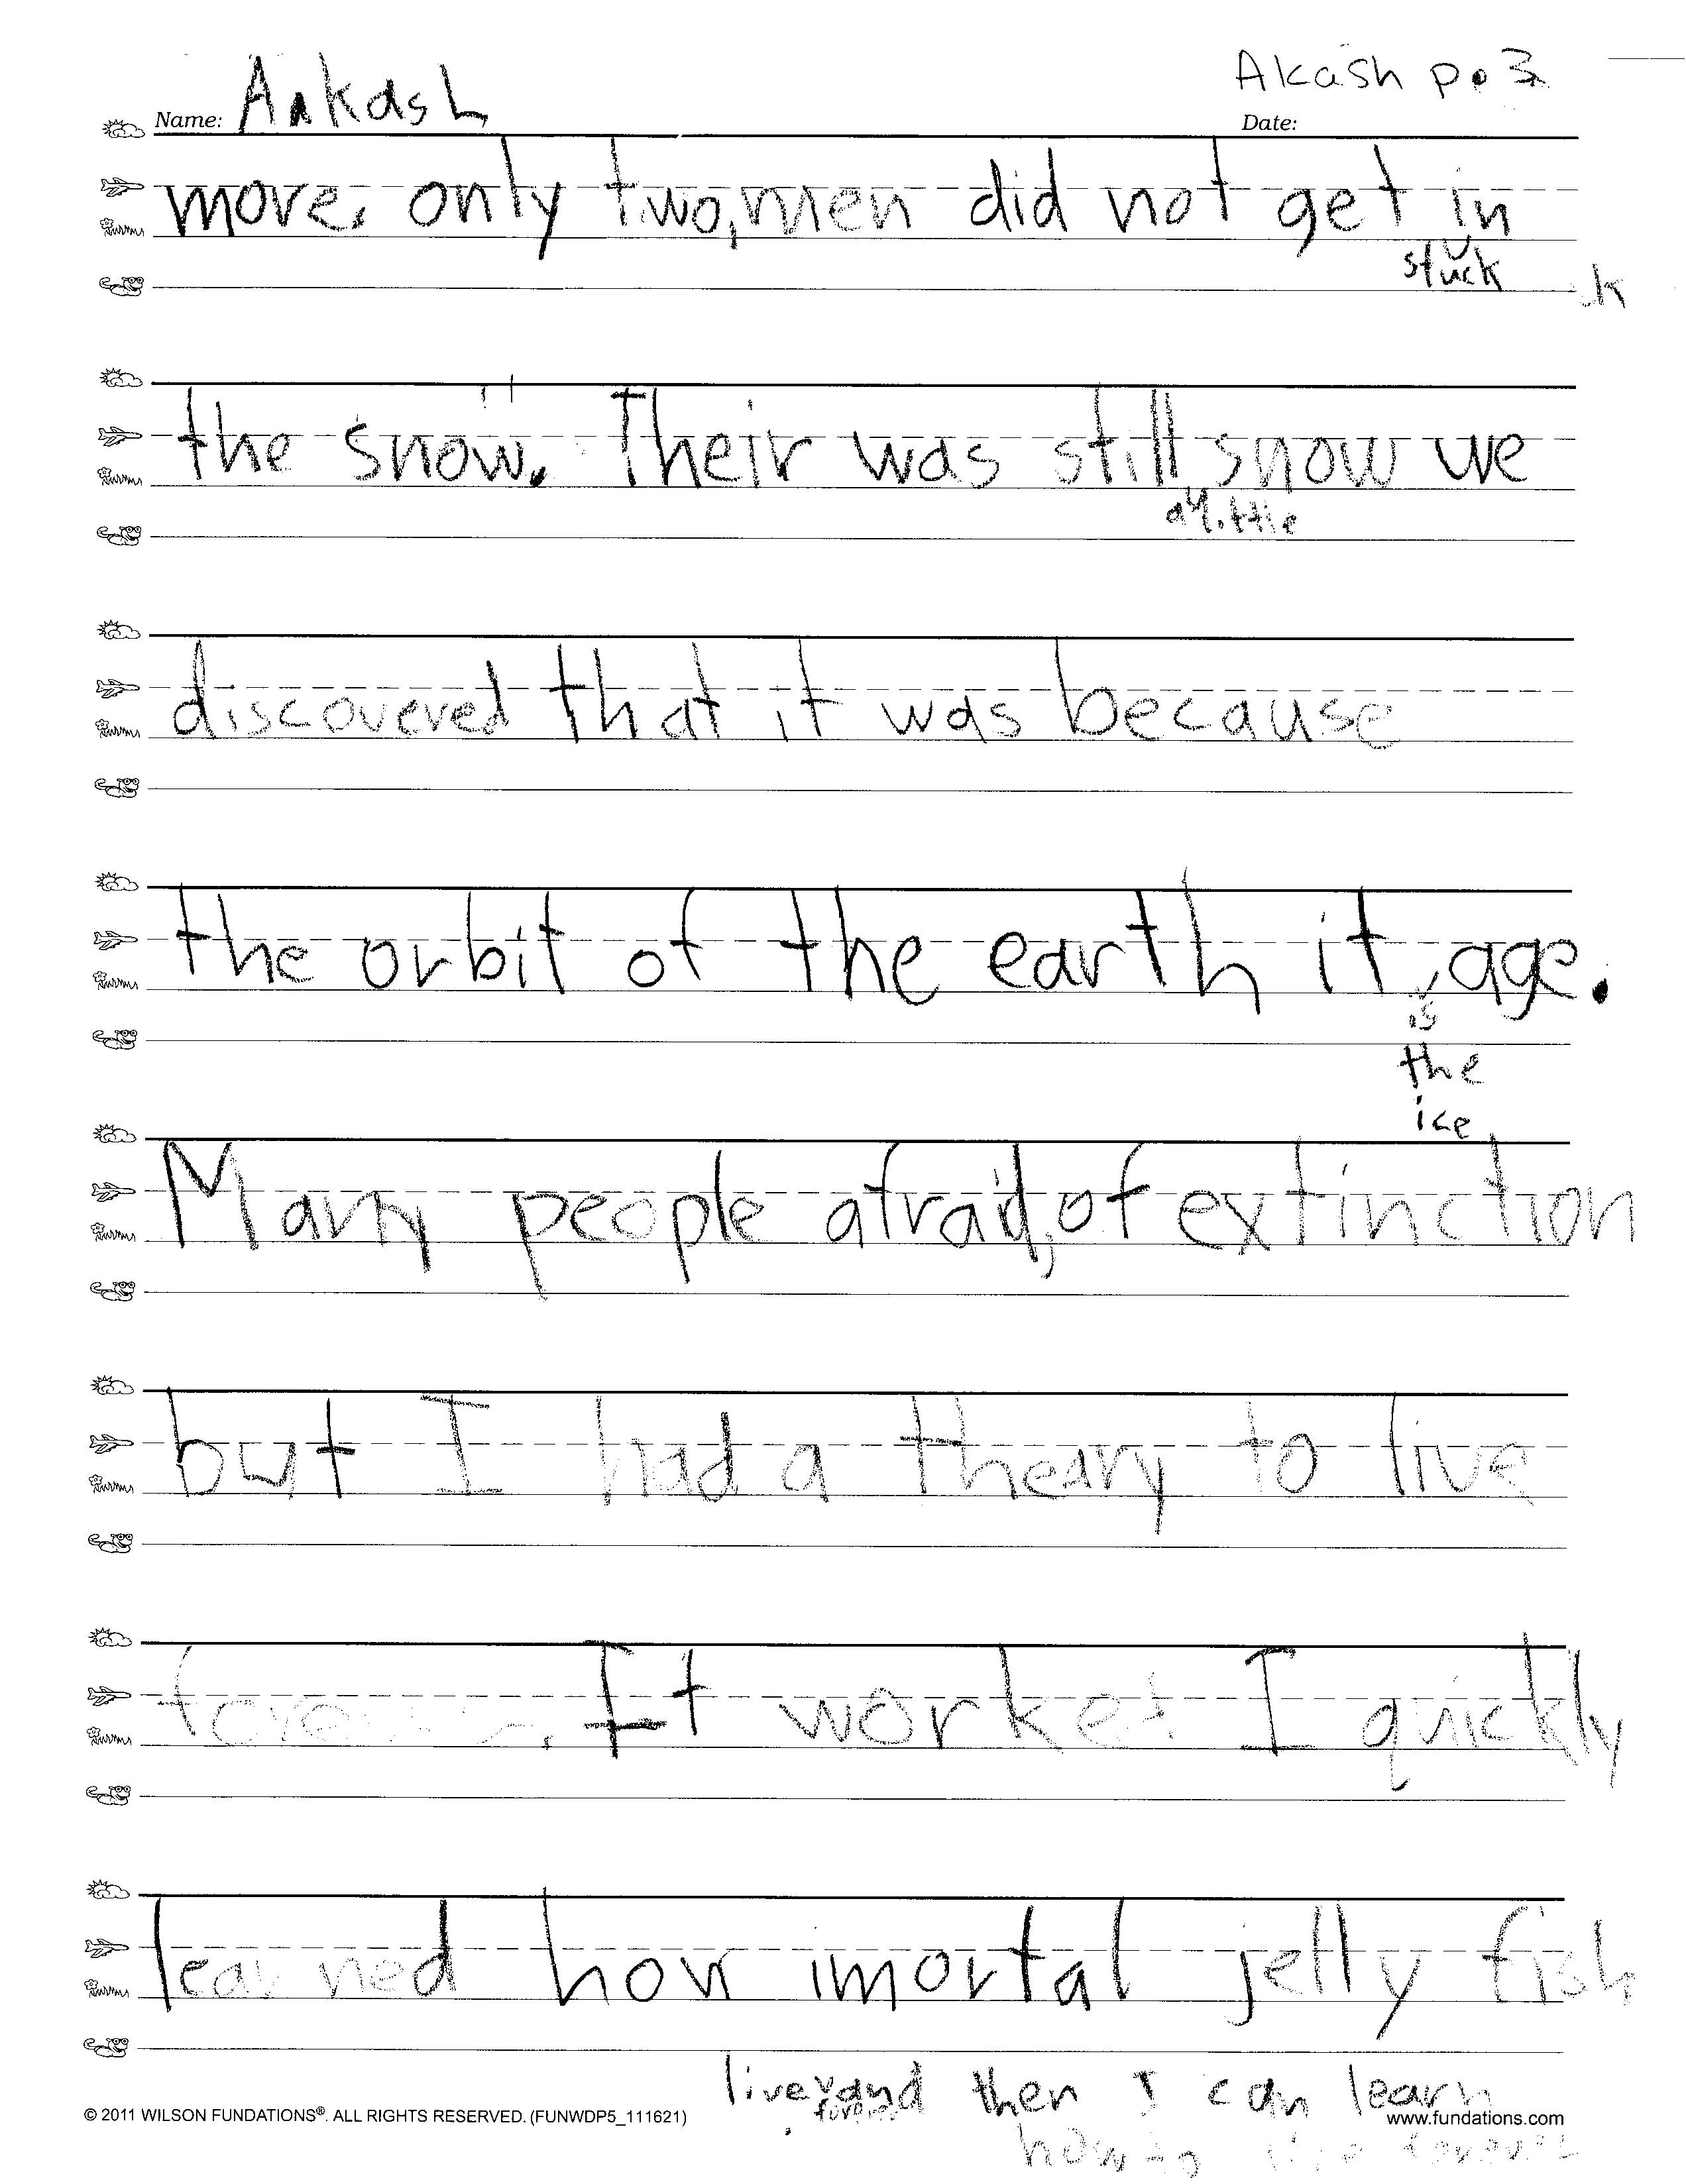 Akash p. 3
Name: Aakash Date:
move. only two, men did not get in
stuck
k
the snow. Their was still snow we
a little
discovered that it was because
the orbit of the earth it age.
is
the
ice
Many people afraid, of extinction
but I had a theary to live
It worked I quickly
learned how imortal jelly fish
live and then I can learn
how to live forever
© 2011 WILSON FUNDATIONS®. ALL RIGHTS RESERVED. (FUNWDP5_111621) www.fundations.com